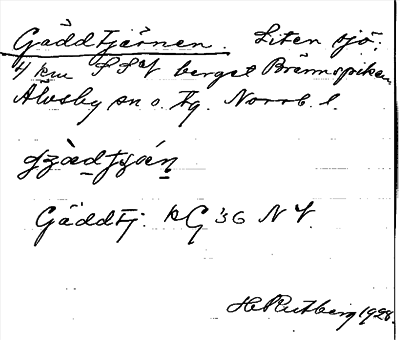 Gäddtjärnen. Liten sjö.
4 km SSV berget Brännspiken
Älvsby sn o. tg. Norrb. l.
Gäddtj. KG 36 NV.
H Rutberg 1928.